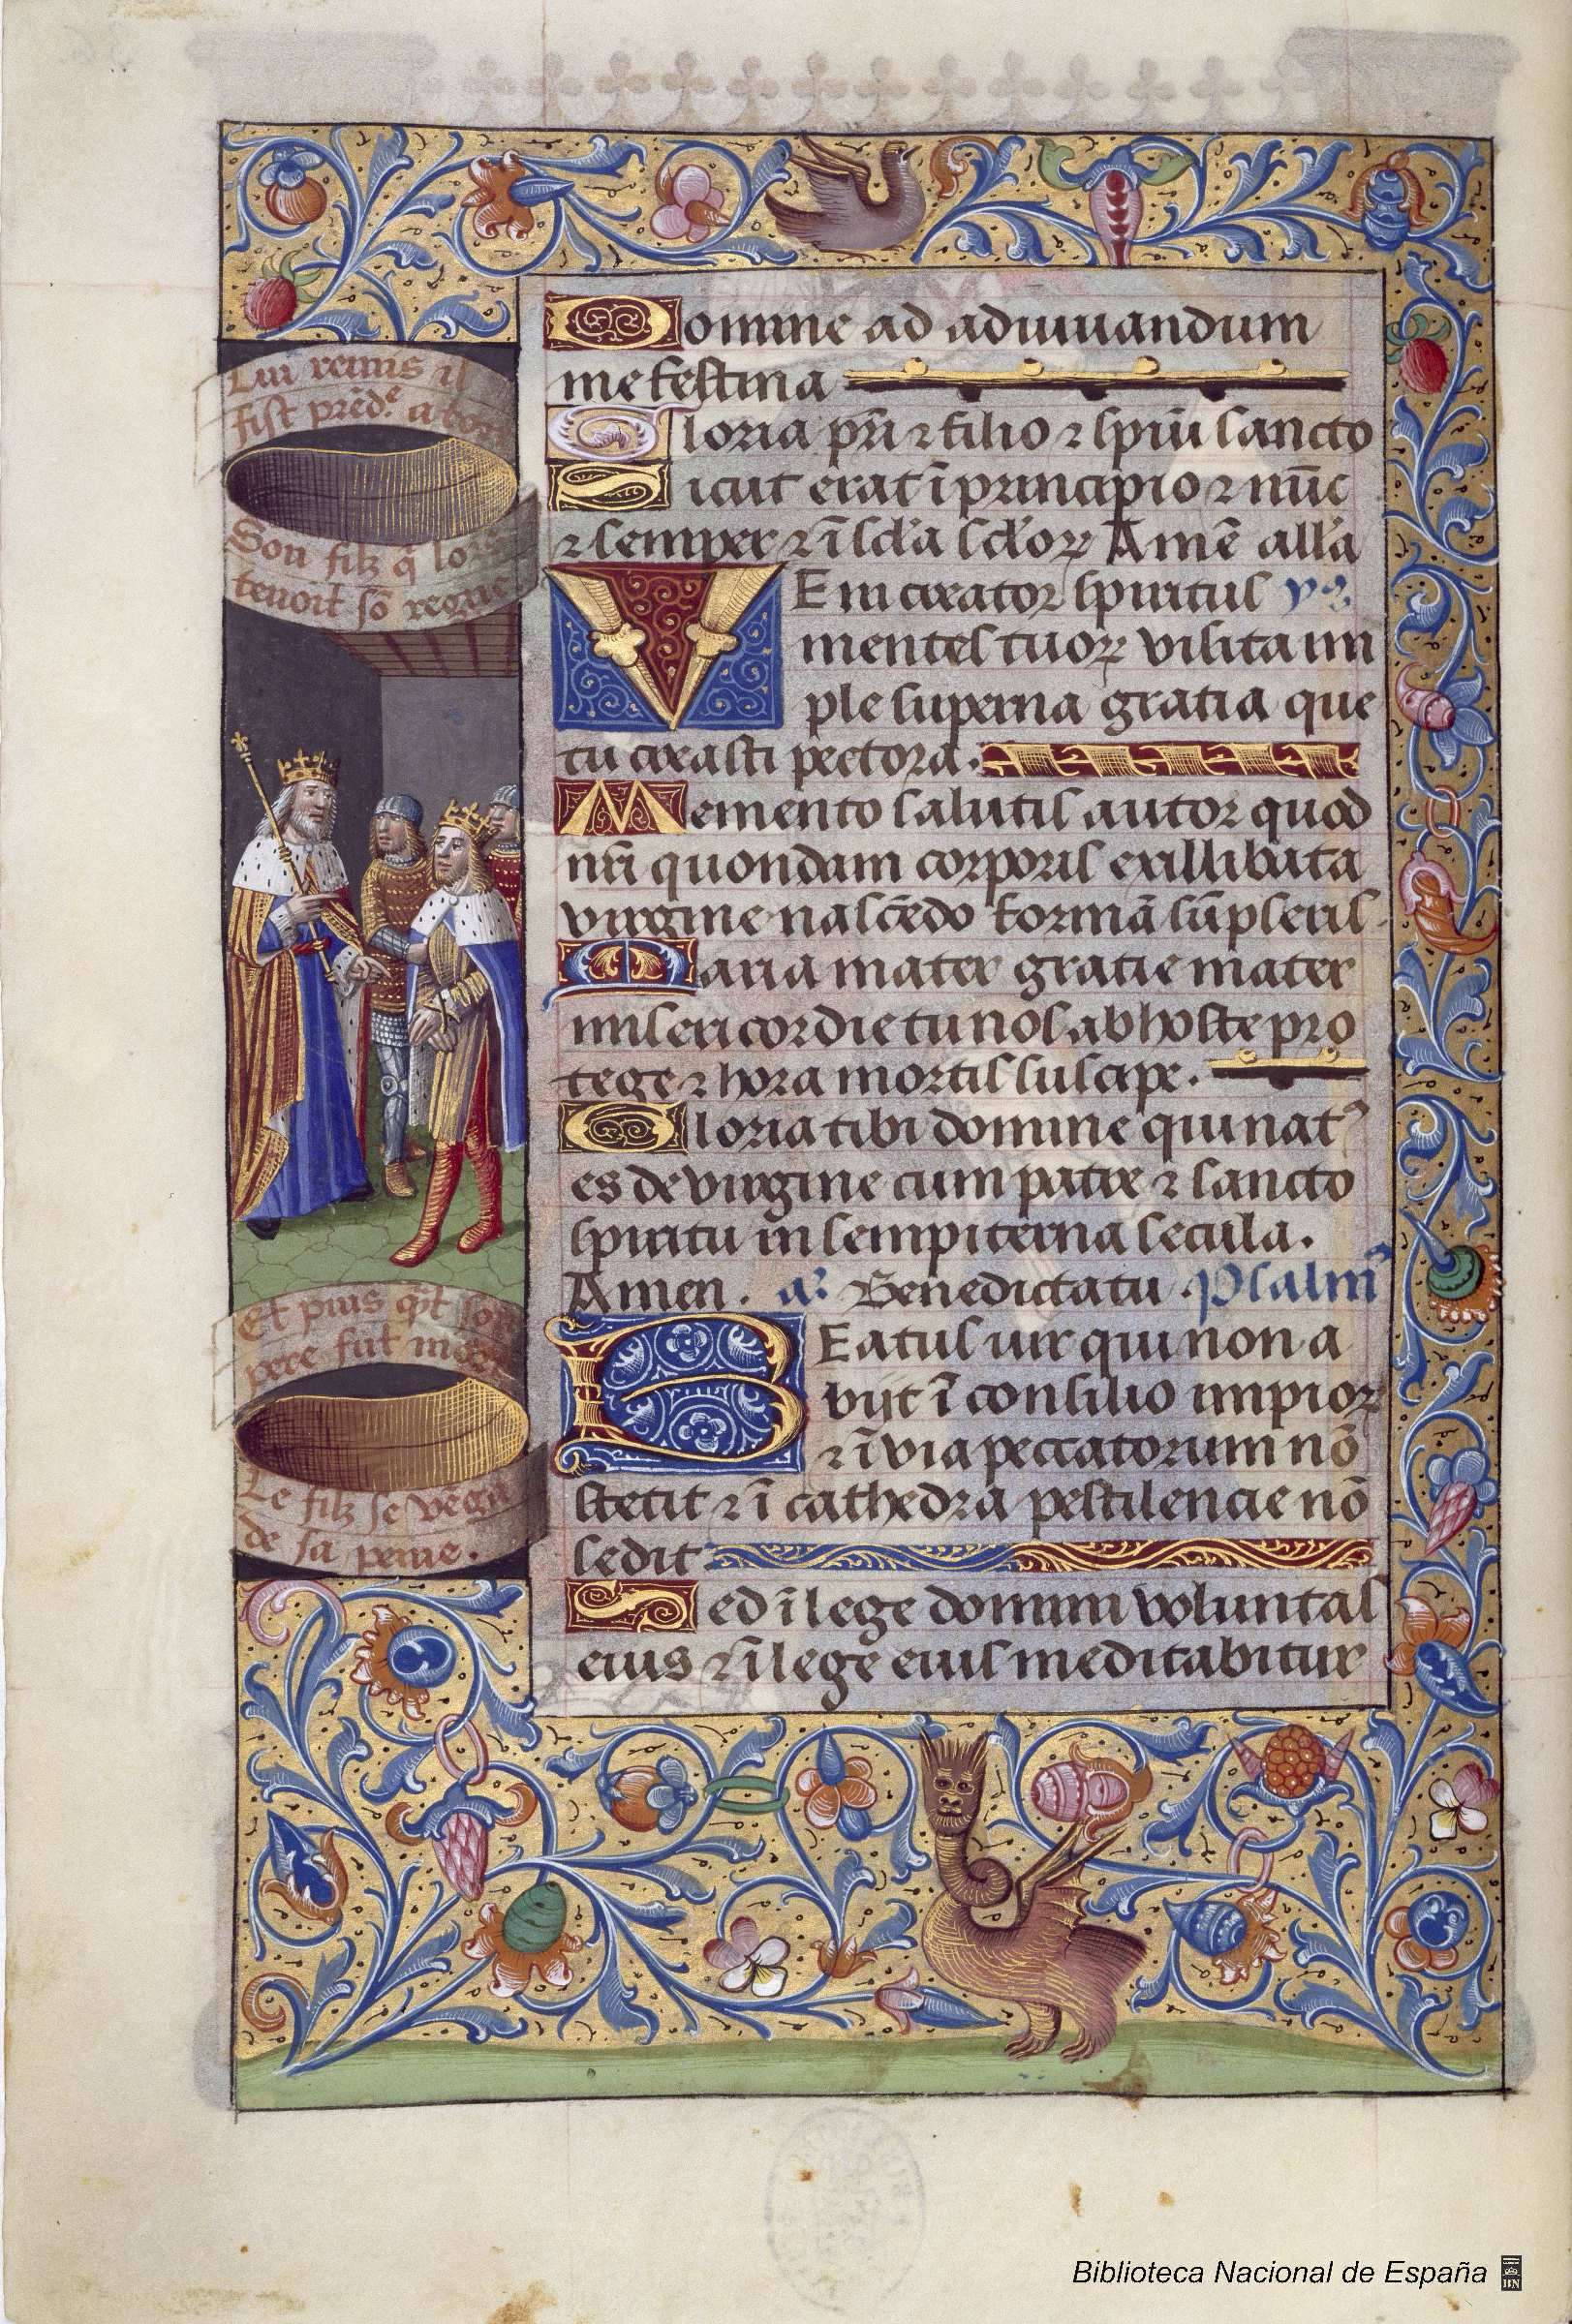 Lui venus il
fist prēd.e a tort
Son filz q̄ lors
tenoit sō regne
Et puis q̄t son
pere fut mort
Le filz se vēga
de sa peine.
Domine ad adiuuandum
me festina
Gloria pr̄i ⁊ filio ⁊ spiū sancto
Sicut erat ī principio ⁊ nūc
⁊ semper ⁊ ī scl̄a scl̄oꝝ Amē all̄a
VEni creator spiritus
mentes tuoꝝ visita im
ple superna gratia que
tu creasti pectora.
Memento salutis autor quod
nr̄i quondam corporis ex illibata
virgine nascēdo formā sūpseris
Maria mater gratie mater
misericordie tu nos ab hoste pro
tege ⁊ hora mortis suscipe.
Gloria tibi domine qui natꝰ
es de virgine cum patre ⁊ sancto
spiritu in sempiterna secula.
Amen. a. Benedicta tu. Psalm̄
BEatus uir qui non a
biit ī consilio impioꝝ
⁊ ī via peccatorum nō
stetit ⁊ ī cathedra pestilencie nō
sedit
Sed ī lege domini voluntas
eius ⁊ ī lege eius meditabitur
Biblioteca Nacional de España
BN